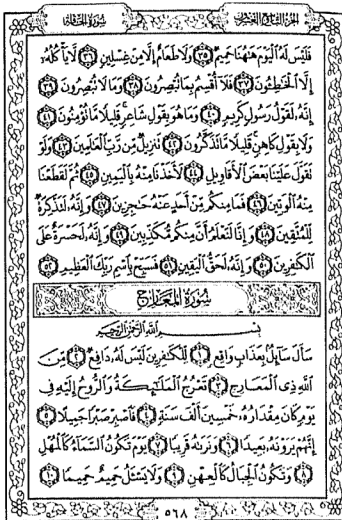 الجزء التاسع والعشرون
سورة الحاقة
فَلَيْسَ لَهُ ٱلْيَوْمَ هَٰهُنَا حَمِيمٌ ٣٥ وَلَا طَعَامٌ إِلَّا مِنْ غِسْلِينٍ ٣٦ لَّا يَأْكُلُهُۥٓ
إِلَّا ٱلْخَٰطِـُٔونَ ٣٧ فَلَآ أُقْسِمُ بِمَا تُبْصِرُونَ ٣٨ وَمَا لَا تُبْصِرُونَ ٣٩
إِنَّهُۥ لَقَوْلُ رَسُولٍ كَرِيمٍ ٤٠ وَمَا هُوَ بِقَوْلِ شَاعِرٍ قَلِيلًا مَّا تُؤْمِنُونَ ٤١
وَلَا بِقَوْلِ كَاهِنٍ قَلِيلًا مَّا تَذَكَّرُونَ ٤٢ تَنزِيلٌ مِّن رَّبِّ ٱلْعَٰلَمِينَ ٤٣ وَلَوْ
تَقَوَّلَ عَلَيْنَا بَعْضَ ٱلْأَقَاوِيلِ ٤٤ لَأَخَذْنَا مِنْهُ بِٱلْيَمِينِ ٤٥ ثُمَّ لَقَطَعْنَا
مِنْهُ ٱلْوَتِينَ ٤٦ فَمَا مِنكُم مِّنْ أَحَدٍ عَنْهُ حَٰجِزِينَ ٤٧ وَإِنَّهُۥ لَتَذْكِرَةٌ
لِّلْمُتَّقِينَ ٤٨ وَإِنَّا لَنَعْلَمُ أَنَّ مِنكُم مُّكَذِّبِينَ ٤٩ وَإِنَّهُۥ لَحَسْرَةٌ عَلَى
ٱلْكَٰفِرِينَ ٥٠ وَإِنَّهُۥ لَحَقُّ ٱلْيَقِينِ ٥١ فَسَبِّحْ بِٱسْمِ رَبِّكَ ٱلْعَظِيمِ ٥٢
سورة المعارج
بِسْمِ ٱللَّهِ ٱلرَّحْمَٰنِ ٱلرَّحِيمِ
سَأَلَ سَآئِلٌۢ بِعَذَابٍ وَاقِعٍ ١ لِّلْكَٰفِرِينَ لَيْسَ لَهُۥ دَافِعٌ ٢ مِّنَ
ٱللَّهِ ذِى ٱلْمَعَارِجِ ٣ تَعْرُجُ ٱلْمَلَٰٓئِكَةُ وَٱلرُّوحُ إِلَيْهِ فِى
يَوْمٍ كَانَ مِقْدَارُهُۥ خَمْسِينَ أَلْفَ سَنَةٍ ٤ فَٱصْبِرْ صَبْرًا جَمِيلًا ٥
إِنَّهُمْ يَرَوْنَهُۥ بَعِيدًا ٦ وَنَرَىٰهُ قَرِيبًا ٧ يَوْمَ تَكُونُ ٱلسَّمَآءُ كَٱلْمُهْلِ
٨ وَتَكُونُ ٱلْجِبَالُ كَٱلْعِهْنِ ٩ وَلَا يَسْـَٔلُ حَمِيمٌ حَمِيمًا ١٠
٥٦٨